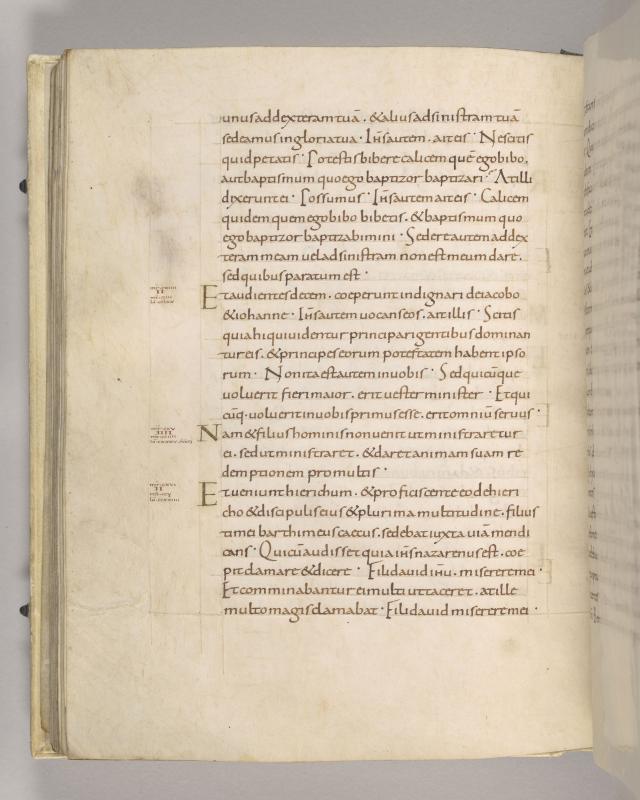 unusaddexteramtuā . &aliusadsinistramtuā
sedeamusingloriatua · Ih̄sautem . aiteis · Nescitis
quidpetatis · Potestisbiberecalicem quē egobibo .
autbaptismum quoego baptizor baptizari · Atilli
dixeruntei · Possumus · Ih̄sautem aiteis · Calicem
quidem quemegobibo bibetis . &baptismum quo
egobaptizor baptizabimini · Sedereautem addex
teram meam veladsinistram nonestmeum dare .
sedquibusparatum est ·
Etaudientesdecem . coeperuntindignari deiacobo
&iohanne · Ih̄sautem vocanseos . aitillis · Scitis
quiahiquividentur principarigentibus dominan
tureis . &principeseorum potestatem habent ipso
rum · Nonitaestautem invobis · Sedquicūque
voluerit fierimaior . erit vester minister · Etqui
cūq· voluerit invobisprimusesse . eritomniū servus ·
Nam&filiushominisnonvenit utministraretur
ei . sedutministraret . &daretanimam suam re
demptionem promultis ·
Etveniunthierichum . &proficiscenteeodehieri
cho &discipuliseius &plurima multitudine . filius
timei barthimeuscaecus . sedebat iuxta viāmendi
cans · Quicūaudisset quia ih̄snazarenusest . coe
pitclamare &dicere · Filidavid ih̄u . misereremei ·
Etcomminabanturei multi uttaceret . atille
multomagisclamabat · Filidavid misereremei ·